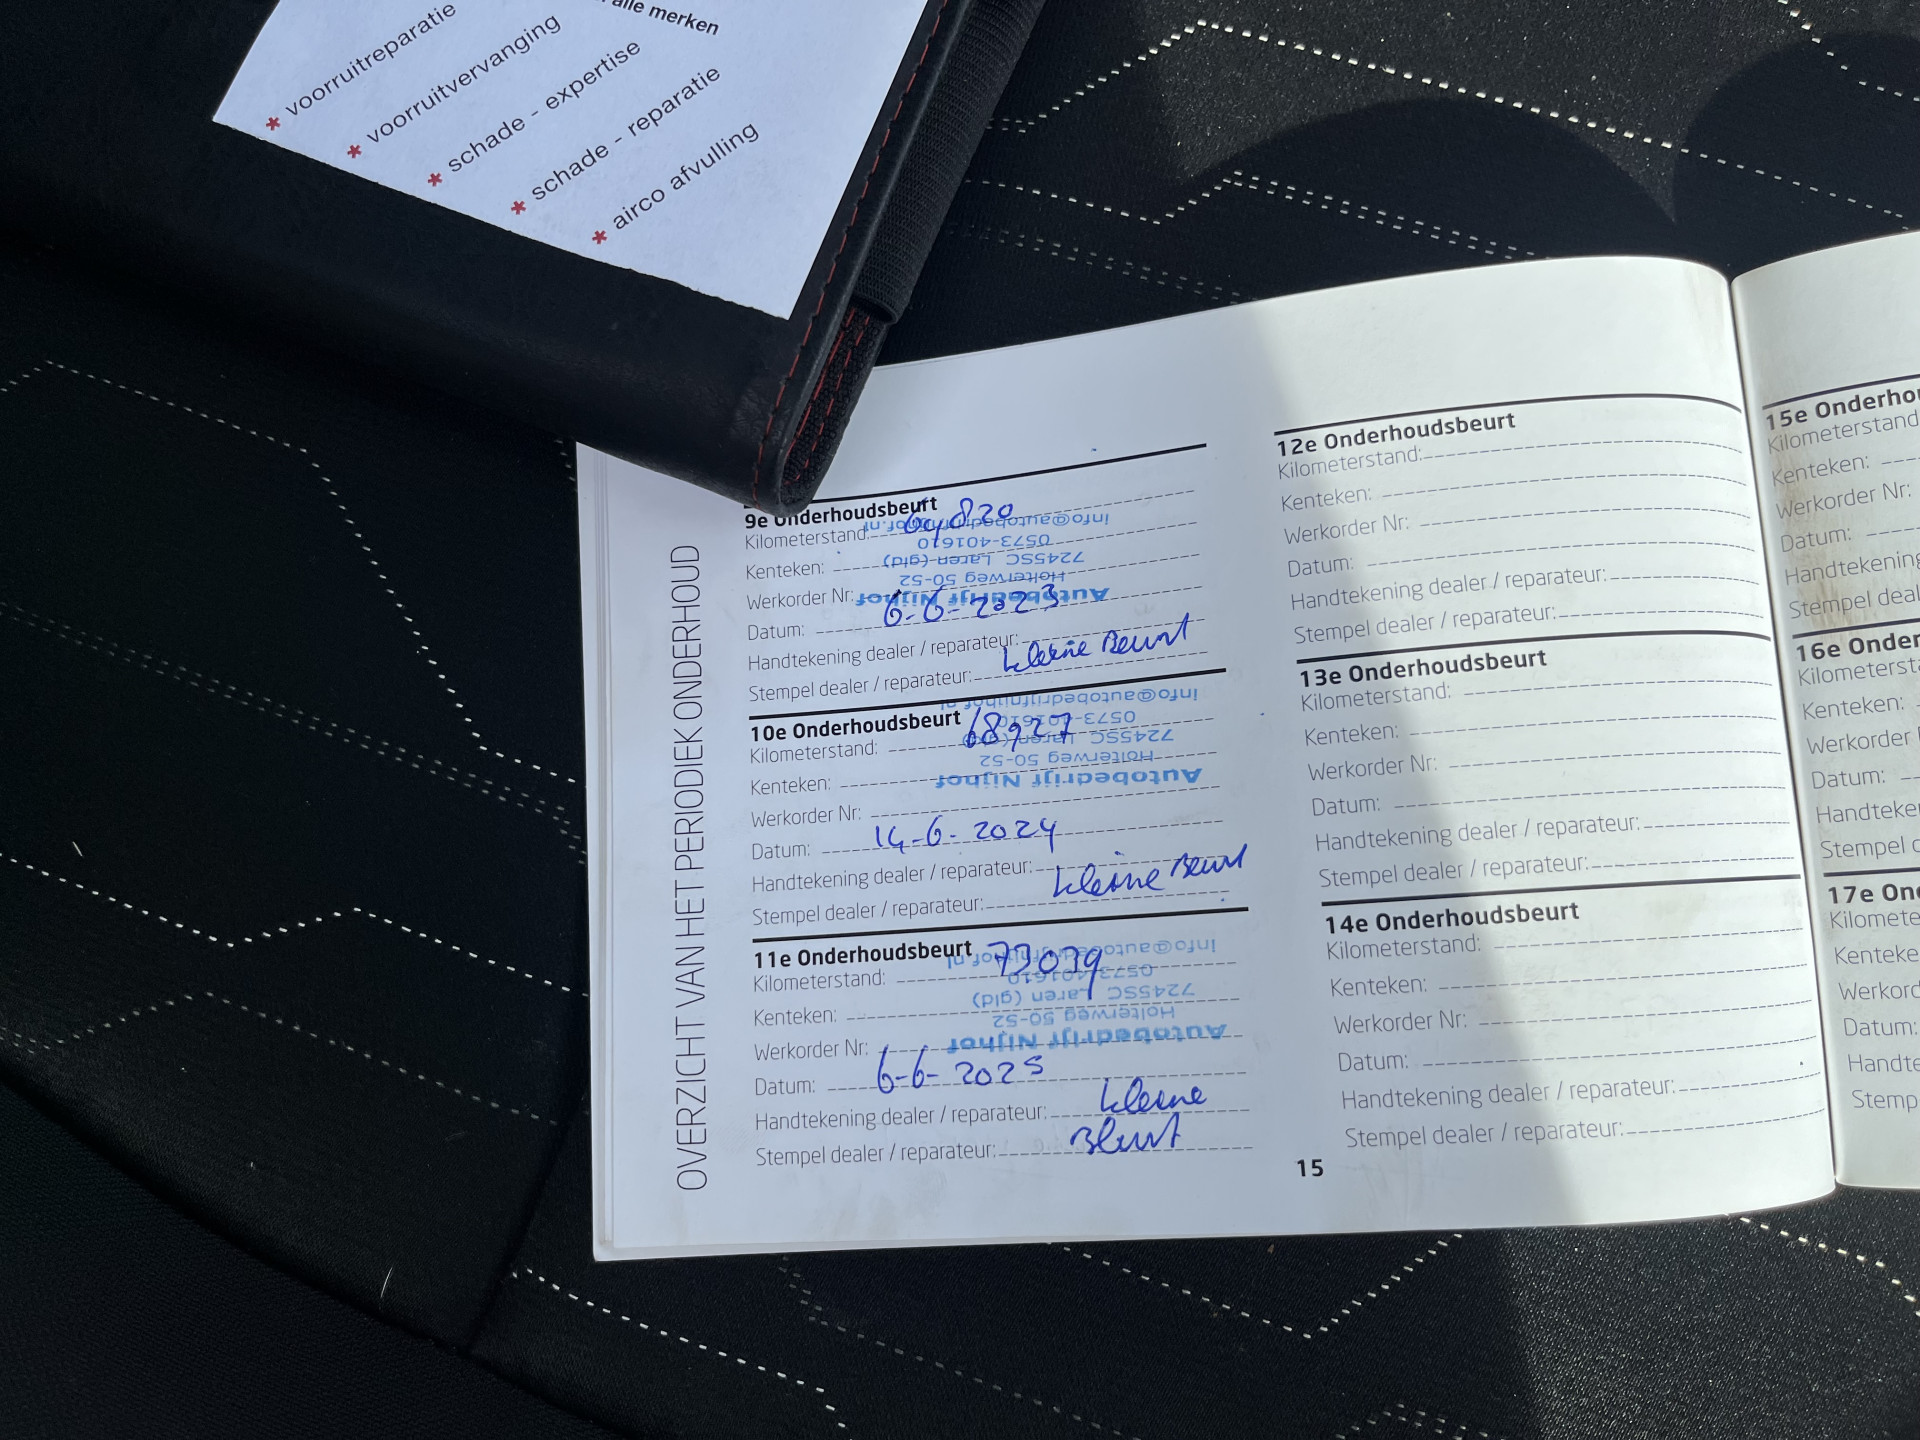 alle merken
* voorruitreparatie
* voorruitvervanging
* schade - expertise
* schade - reparatie
* airco afvulling
OVERZICHT VAN HET PERIODIEK ONDERHOUD
9e Onderhoudsbeurt
Kilometerstand: 64820
Kenteken:
Werkorder Nr:
Datum: 6-6-2023
Handtekening dealer / reparateur: kleine Beurt
Stempel dealer / reparateur:
Autobedrijf Nijhof
Holterweg 50-52
7245SC Laren (gld)
0573-401610
info@autobedrijfnijhof.nl
10e Onderhoudsbeurt
Kilometerstand: 68927
Kenteken:
Werkorder Nr:
Datum: 14-6-2024
Handtekening dealer / reparateur: kleine Beurt
Stempel dealer / reparateur:
Autobedrijf Nijhof
Holterweg 50-52
7245SC Laren (gld)
0573-401610
info@autobedrijfnijhof.nl
11e Onderhoudsbeurt
Kilometerstand: 73039
Kenteken:
Werkorder Nr:
Datum: 6-6-2025
Handtekening dealer / reparateur: kleine
Stempel dealer / reparateur: Beurt
Autobedrijf Nijhof
Holterweg 50-52
7245SC Laren (gld)
0573-401610
info@autobedrijfnijhof.nl
12e Onderhoudsbeurt
Kilometerstand:
Kenteken:
Werkorder Nr:
Datum:
Handtekening dealer / reparateur:
Stempel dealer / reparateur:
13e Onderhoudsbeurt
Kilometerstand:
Kenteken:
Werkorder Nr:
Datum:
Handtekening dealer / reparateur:
Stempel dealer / reparateur:
14e Onderhoudsbeurt
Kilometerstand:
Kenteken:
Werkorder Nr:
Datum:
Handtekening dealer / reparateur:
Stempel dealer / reparateur:
15
15e Onderhou
Kilometerstand
Kenteken:
Werkorder Nr:
Datum:
Handtekening
Stempel deal
16e Onder
Kilometerst
Kenteken:
Werkorder
Datum:
Handteke
Stempel d
17e On
Kilomete
Kenteke
Werkord
Datum:
Handte
Stemp